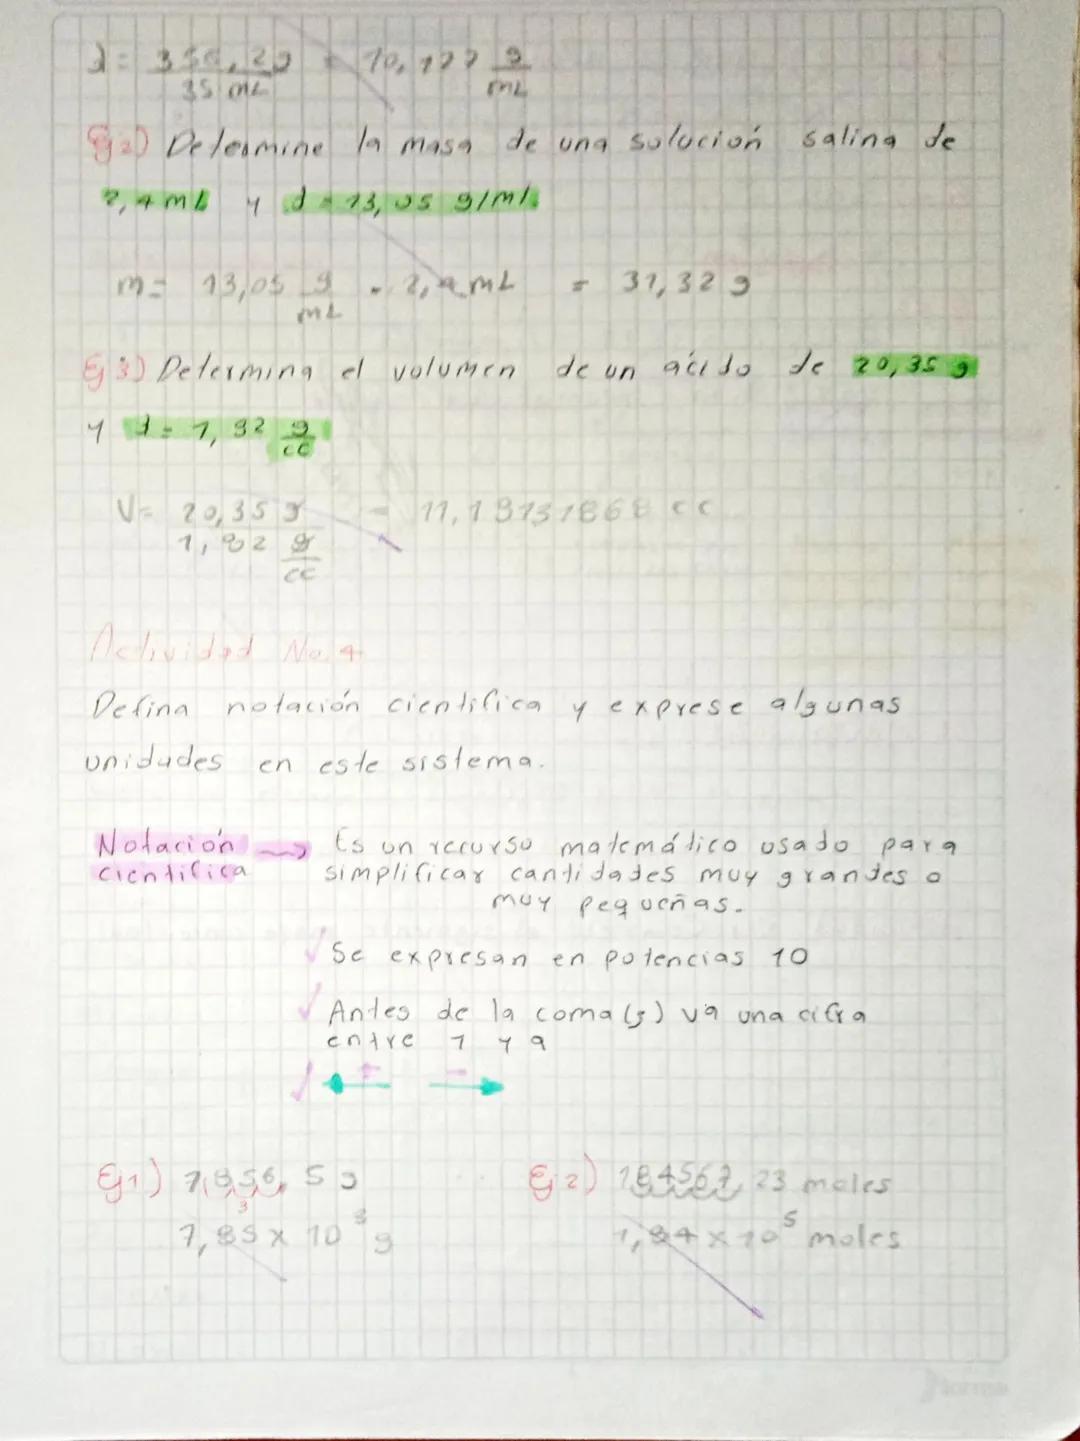 d = 356,2 g = 10,177 g
35 mL mL
Ej 2) Determine la masa de una solución salina de
2,4 mL y d = 13,05 g/mL.
m = 13,05 g · 2,4 mL = 31,32 g
mL
Ej 3) Determina el volumen de un ácido de 20,35 g
y d = 1,82 g
cc
V = 20,35 g = 11,18131868 cc
1,82 g
cc
Actividad No. 4
Defina notación cientifica y exprese algunas
unidades en este sistema.
Notación → Es un recurso matemático usado para
cientifica simplificar cantidades muy grandes o
muy pequeñas.
✓ Se expresan en potencias 10
✓ Antes de la coma (,) va una cifra
entre 1 y 9
✓ ← + - →
Ej 1) 7,856, 5 g Ej 2) 184567, 23 moles
3
7,85 x 10³ g 1,84 x 10⁵ moles
Norma